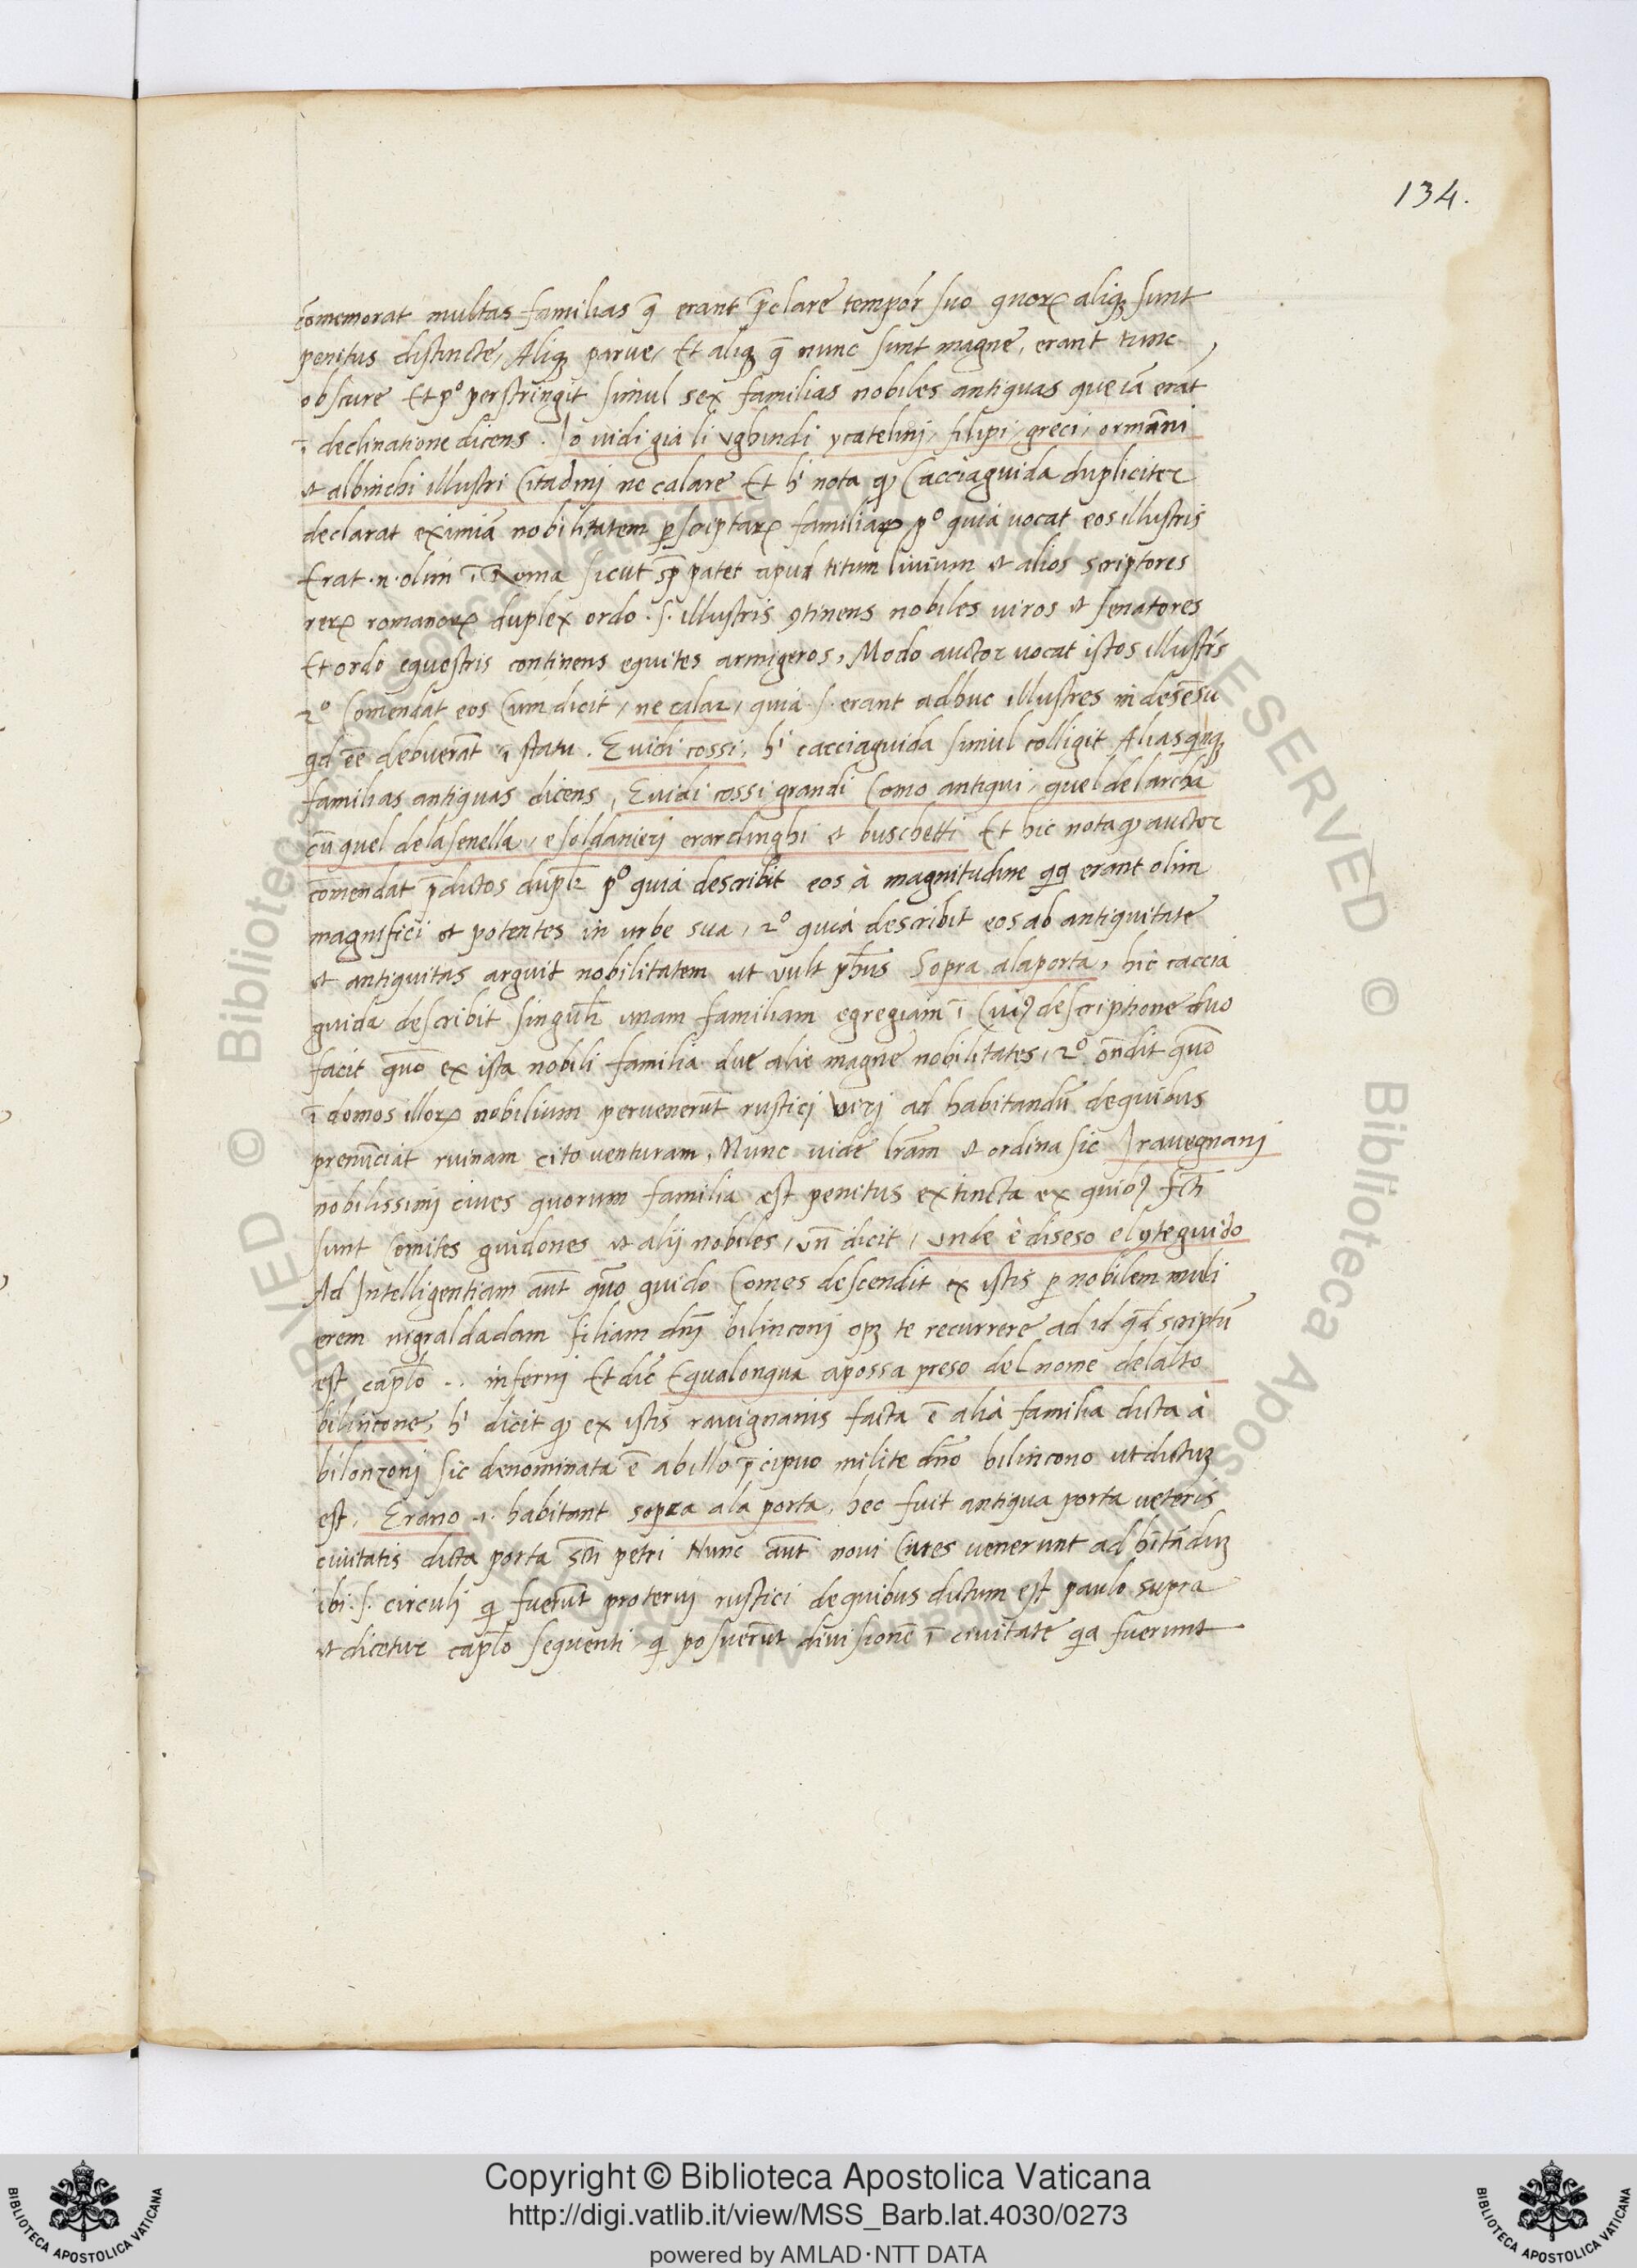 134.
cōmemorat multas familias q̄ erant p̄clare tempor̄ suo quorꝝ aliqꝫ sunt
penitus distincte, Aliqꝫ parue, Et aliqꝫ q̄ nunc sunt magne, erant tunc
obscure Et pº perstringit simul sex familias nobiles antiquas que iā erāt
ī declinatione dicens. Io uidi gia li vghindi ycatelinj, filipi, greci, ormānni
et albinchi illustri Citadinj ne calare Et hⁱ nota ꝙ Cacciaguida dupliciter
declarat eximiā nobilitatem p̄scriptarꝝ familiarꝝ pº quia uocat eos illustris
Erat .n. olim ī Roma sicut sp̄ patet apud titum liuium et alios scriptores
rerꝝ romanorꝝ duplex ordo .s. illustris ꝯtinens nobiles uiros et senatores
Et ordo equestris continens equites armigeros, Modo auctor uocat istos illustr̄s
2º Comendat eos Cum dicit, ne calar, quia .s. erant adhuc illustres in desēsu
qd ēē debuerāt ī statu. E uidi cossi, hⁱ cacciaguida simul colligit Alias qīnqꝫ
familias antiquas dicens, E uidi cossi grandi Como antiqui, quel delarcha
cū quel dela senella, e soldanierj erardinghi et buschetti Et hic nota ꝙ auctor
cōmendat p̄dictos dupl̄r pº quia describit eos à magnitudine qꝗ erant olim
magnifici et potentes in urbe sua, 2º quia describit eos ab antiquitate
et antiquitas arguit nobilitatem ut vult ph̄us Sopra alaporta, hic caccia
guida describit singul̄r unam familiam egregiam ī Cuiꝰ descriptione duo
facit quō ex ista nobili familia due alie magne nobilitates, 2º ōndit quō
ī domos illorꝝ nobilium peruenerūt rusticj virj ad habitandū de quibus
prenūciat ruinam cito venturam, Nunc vide lrām et ordina sic I rauegnanj
nobilissimj ciues quorum familia est penitus extincta ex quibꝰ fct̄i
sunt Comites guidones et alij nobiles, vn̄ dicit, vnde è diseso el ꝯte guido
Ad Intelligentiam aūt quō guido Comes descendit ex istis p nobilem muli
erem uigraldadam filiam dnj̄ bilinconj opꝫ te recurrere ad id qd̄ scriptū
est caplō .. infernj Et dic̄ Equalonqua apossa preso del nome delalto
bilincone, hⁱ dicit ꝙ ex istis rauignanis facta ē alia familia dicta à
bilonzonj sic denominata ē ab illo p̄cipuo milite dnō bilincono ut dictuꝫ
est, Erano .i. habitant sopra ala porta, hec fuit antiqua porta veteris
ciuitatis dicta porta sct̄i petri Nunc aūt noui Ciues uenerunt ad hītāduꝫ
ibi .s. circulj q̄ fuerūt proteruj rustici de quibus dictum est paulo supra
et dicetur caplō sequenti, q̄ posuerūt diuisionē ī ciuitate qa fuerunt
Copyright © Biblioteca Apostolica Vaticana
http://digi.vatlib.it/view/MSS_Barb.lat.4030/0273
powered by AMLAD·NTT DATA
BIBLIOTECA APOSTOLICA VATICANA
BIBLIOTECA APOSTOLICA VATICANA